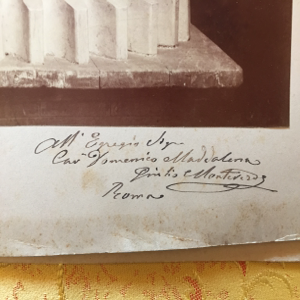 All' Egregio Sigr
Cavr Domenico Maddalena
Giulio Monteverde
Roma